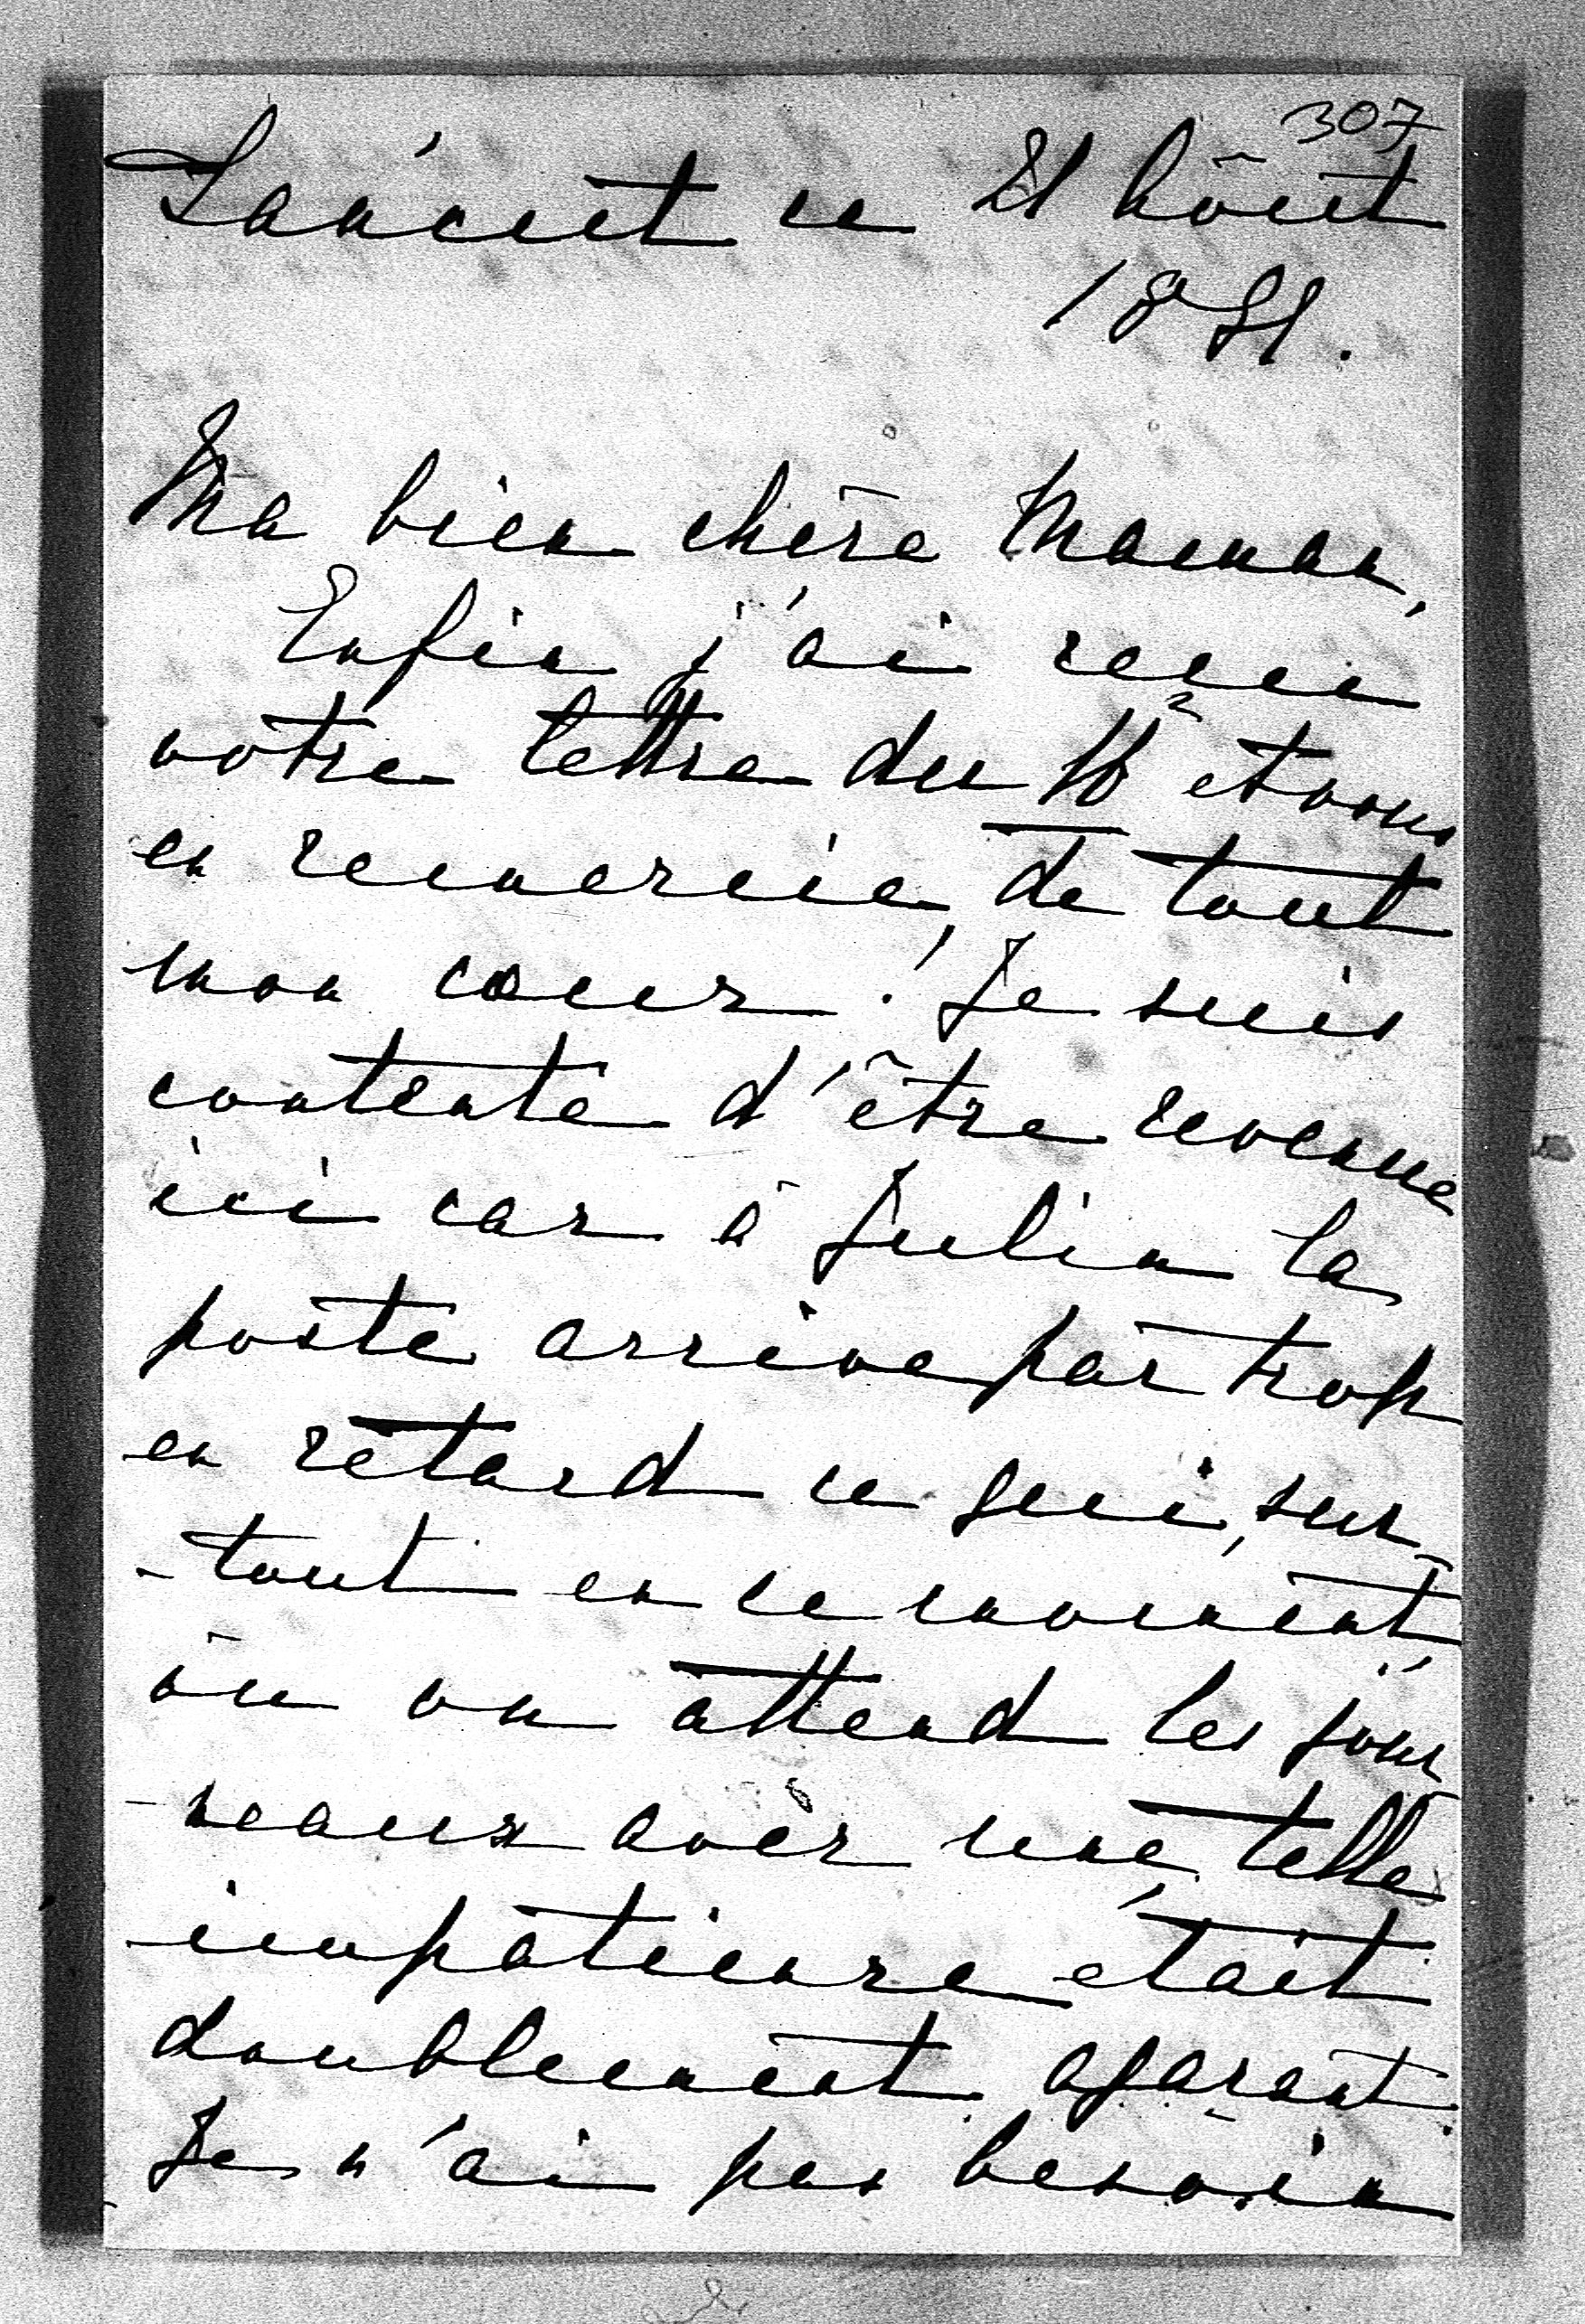 307
Łańcut ce 21 Août
1881.
Ma bien chère Maman,
Enfin j'ai reçu
votre lettre du 16 et vous
en remercie, de tout
mon coeur. Je suis
contente d'être revenue
ici car à Julin la
poste arrive par trop
en retard ce qui, sur-
-tout en ce moment
où on attend les jour-
-naux avec une telle
impatience était
doublement agaçant.
Je n'ai pas besoin